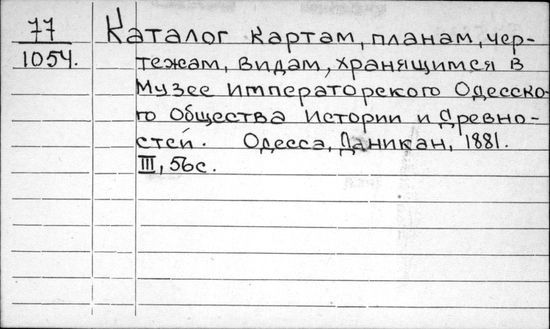 77
1054.
Каталог картам, планам, чер-
тежам, видам, хранящимся в
Музее императорского Одесско-
го Общества Истории и древно-
стей. Одесса, Даникан, 1881.
III, 56с.